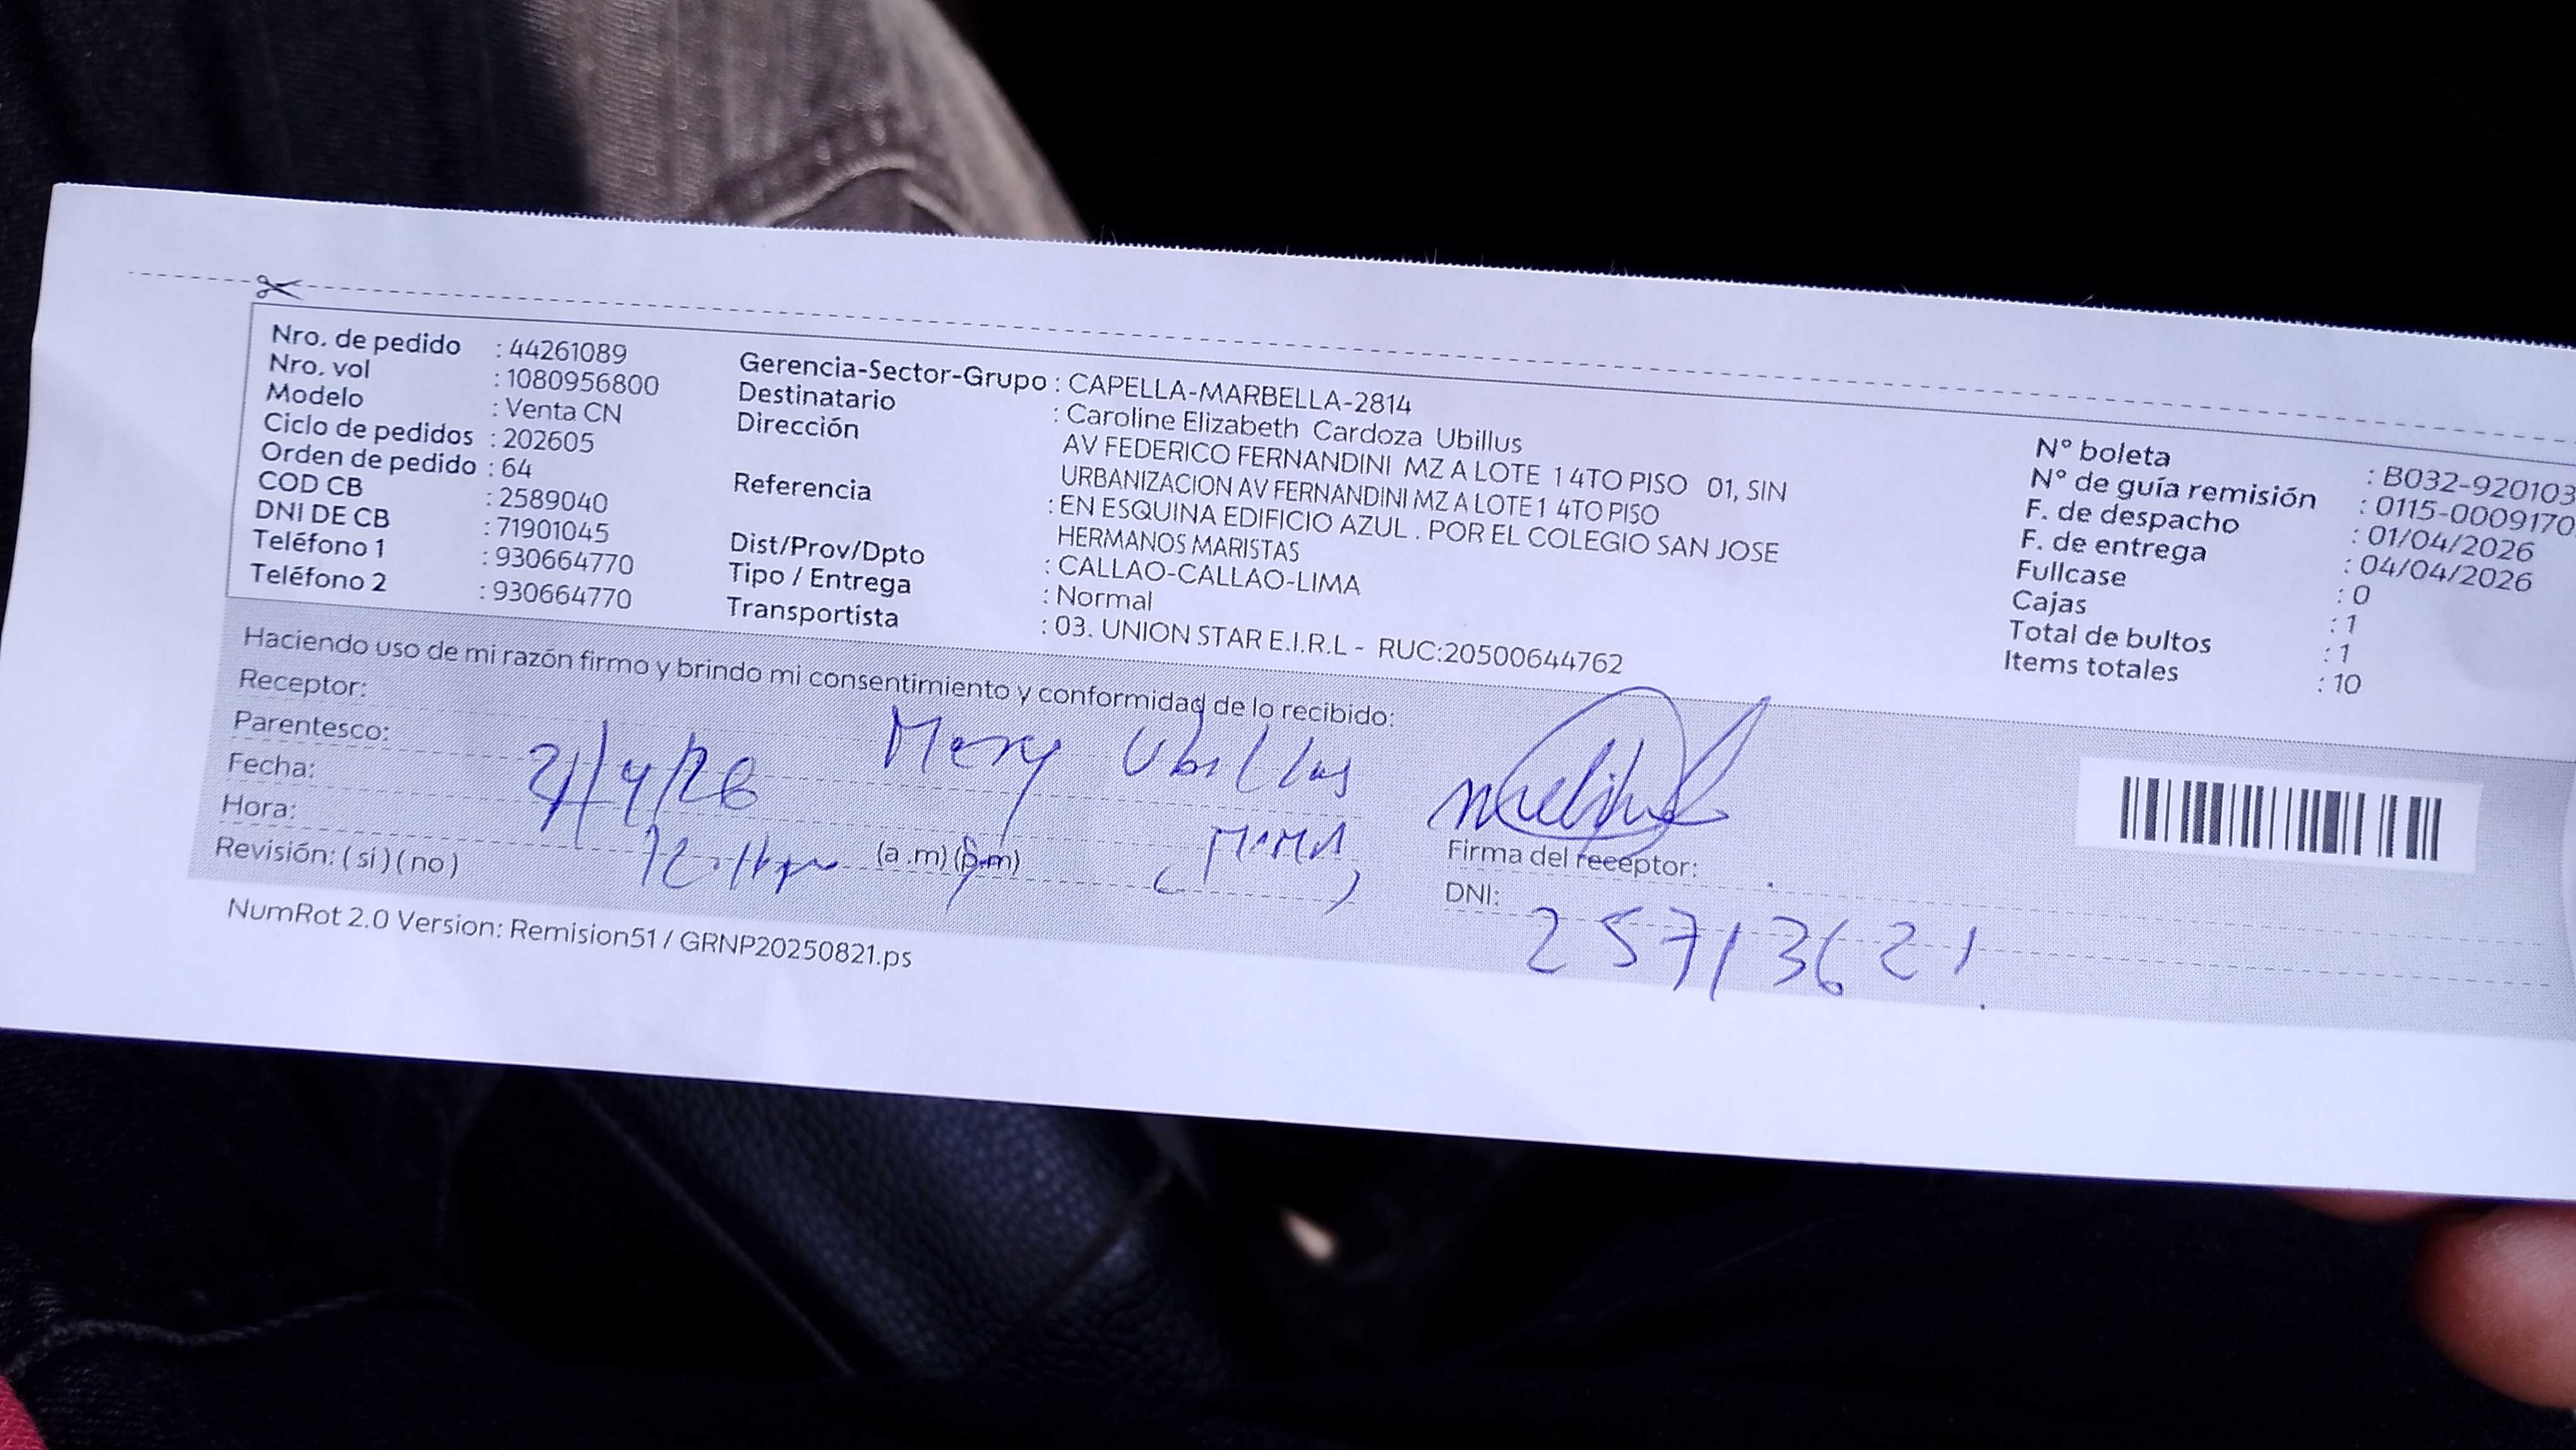 Nro. de pedido : 44261089
Nro. vol : 1080956800
Modelo : Venta CN
Ciclo de pedidos : 202605
Orden de pedido : 64
COD CB : 2589040
DNI DE CB : 71901045
Teléfono 1 : 930664770
Teléfono 2 : 930664770
Gerencia-Sector-Grupo : CAPELLA-MARBELLA-2814
Destinatario : Caroline Elizabeth Cardoza Ubillus
Dirección AV FEDERICO FERNANDINI MZ A LOTE 1 4TO PISO 01, SIN
URBANIZACION AV FERNANDINI MZ A LOTE1 4TO PISO
Referencia : EN ESQUINA EDIFICIO AZUL . POR EL COLEGIO SAN JOSE
HERMANOS MARISTAS
Dist/Prov/Dpto : CALLAO-CALLAO-LIMA
Tipo / Entrega : Normal
Transportista : 03. UNION STAR E.I.R.L - RUC:20500644762
N° boleta : B032-920103
N° de guía remisión : 0115-0009170
F. de despacho : 01/04/2026
F. de entrega : 04/04/2026
Fullcase : 0
Cajas : 1
Total de bultos : 1
Items totales : 10
Haciendo uso de mi razón firmo y brindo mi consentimiento y conformidad de lo recibido:
Receptor: Mery Ubillus
Parentesco:
Fecha:
Hora: (a .m) (p.m)
Revisión: ( si ) ( no )
Firma del receptor:
DNI: 25713621
NumRot 2.0 Version: Remision51 / GRNP20250821.ps